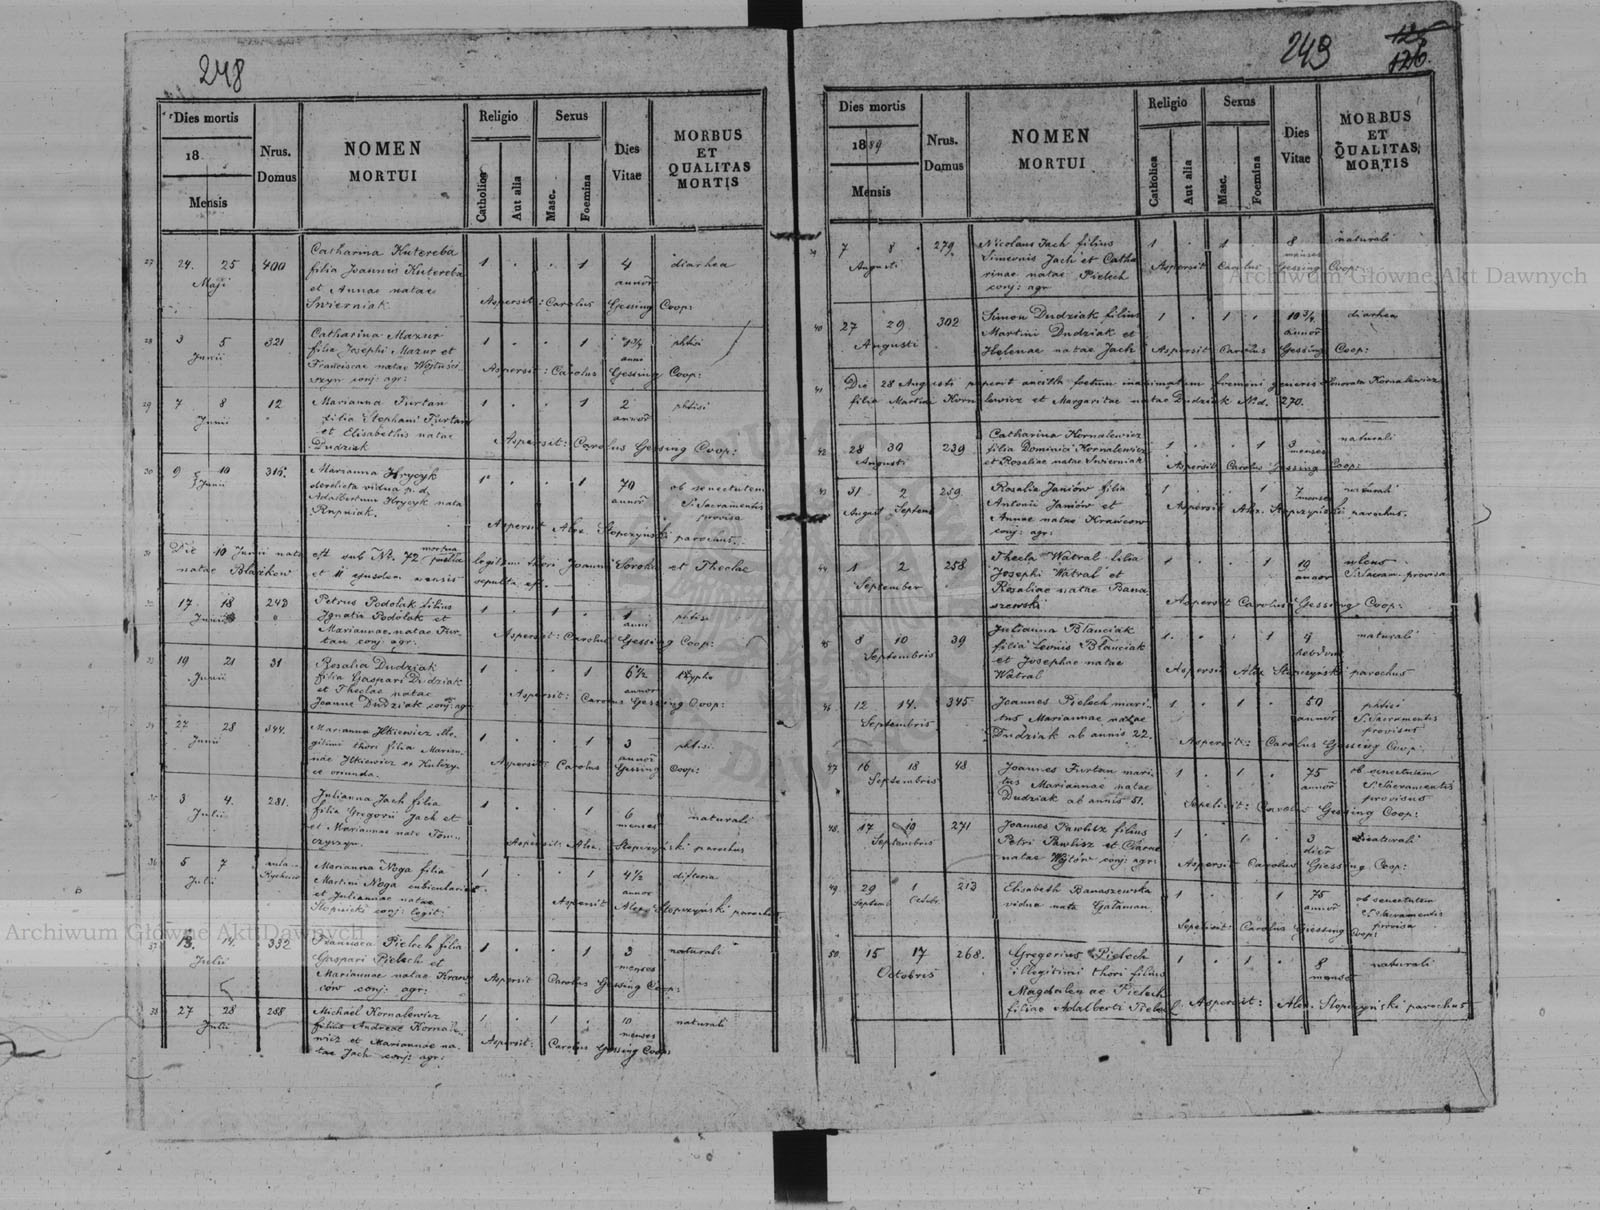 248
Dies mortis
18
Mensis
Nrus.
Domus
NOMEN
MORTUI
Religio
Catholica
Aut alia
Sexus
Masc.
Foemina
Dies
Vitae
MORBUS
ET
QUALITAS
MORTIS
27 24. 25 Maji 400
Catharina Kutereba
filia Joannis Kutereba
et Annae natae
Swierniak.
1 . . 1 4 annor diarhea
Aspersit: Carolus Gessing Coop:
28 3 5 Junii 321
Catharina Mazur
filia Josephi Mazur et
Franciscae natae
conj: agr:
1 . . 1 anno
Aspersit: Carolus Gessing Coop:
29 7 8 Junii 12
Marianna Furtan
filia Stephani Furtan
et Elisabethis natae
Dudziak
1 . . 1 2 annor phtisi
Aspersit: Carolus Gessing Coop:
30 9 10 Junii 316.
Marianna Hrycyk
derelicta vidua p. d.
Adalbertum Hrycyk nata
Rupniak.
1 . . 1 70 annor ob senectutem
S. Sacramentis
provisa
Aspersit Alex. Stopczyński parochus.
31 Die 10 Junii nata est sub Nr. 72 mortua puella legitimi thori Joannis Soroka et Theclae
natae Blazkow et 11 ejusdem mensis sepulta est.
32 17 18 Junii 243
Petrus Podolak filius
Ignatii Podolak et
Mariannae natae Fur-
tan conj: agr:
1 . 1 . 1 anni phtisi
Aspersit: Carolus Gessing Coop:
33 19 21 Junii 31
Rosalia Dudziak
filia Gaspari Dudziak
et Theclae natae
Dudziak conj: agr
1 . . 1 6 1/2 annor typho
Aspersit: Carolus Gessing Coop:
34 27 28 Junii 344.
Marianna Ilkiewicz ille-
gitimi thori filia Marian-
nae Ilkiewicz ex
oriunda.
1 . . 1 3 annor phtisi.
Aspersit: Carolus Gessing Coop:
35 3 4. Julii 281.
Julianna Jach filia
filia Gregorii Jach et
et Mariannae nate Tom-
czyszyn.
1 . . 1 6 menses naturali
Aspersit: Alex. Stopczyński parochus
36 5 7 Julii
Marianna Noga filia
Martini Noga cubicularii
et Juliannae natae
Stopnicki conj: legit:
1 . . 1 4 1/2 annor difteria
Aspersit Alex. Stopczyński parochus
37 13. 14. Julii 332
Francisca Pielech filia
Gaspari Pielech et
Mariannae natae Kraw-
ców conj: agr:
1 . . 1 3 menses naturali
Aspersit Carolus Gessing Coop:
38 27 28 Julii 288
Michael Kornalewicz
filius Andreae Kornale-
wicz et Mariannae na-
tae Jach conj: agr:
1 . 1 . 10 menses naturali
Aspersit: Carolus Gessing Coop:
243
126.
Dies mortis
1889
Mensis
Nrus.
Domus
NOMEN
MORTUI
Religio
Catholica
Aut alia
Sexus
Masc.
Foemina
Dies
Vitae
MORBUS
ET
QUALITAS
MORTIS
39 7 8 Augusti 279.
Nicolaus Jach filius
Simeonis Jach et Catha-
rinae natae Pielech
conj: agr
1 . 1 . 8 menses naturali
Aspersit Carolus Gessing Coop:
40 27 29 Augusti 302
Simon Dudziak filius
Martini Dudziak et
Helenae natae Jach
1 . 1 . 10 3/4 annor diarhea
Aspersit Carolus Gessing Coop:
41 Die 28 Augusti peperit ancilla foetum inanimatum foemini generis Honorata Kornalewicz
filia Martini Kornalewicz et Margaritae natae Dudziak N. d. 270.
42 28 30 Augusti 239
Catharina Kornalewicz
filia Dominici Kornalewicz
et Rosaliae natae Swierniak
1 . . 1 3 menses naturali
Aspersit Carolus Gessing Coop:
43 31 2 August Septem 259
Rosalia Janiów filia
Antonii Janiów et
Annae natae Krawców
conj: agr:
1 . . 1 7 menses naturali
Aspersit Alex. Stopczyński parochus.
44 1 2 September 258
Thecla Watral filia
Josephi Watral et
Rosaliae natae Bana-
szewski
1 . . 1 19 annor ulcus
S. Sacram. provisa
Aspersit Carolus Gessing Coop:
45 8 10 Septembris 39
Julianna Blanciak
filia Leonis Blanciak
et Josephae natae
Watral
1 . . 1 4 hebdom naturali
Aspersit Alex Stopczyński parochus
46 12 14. Septembris 345
Joannes Pielech mari-
tus Mariannae natae
Dudziak ab annis 22.
1 . 1 . 50 annor phtisi
S. Sacramentis
provisus
Aspersit: Carolus Gessing Coop:
47 16 18 Septembris 48
Joannes Furtan mari-
tus Mariannae natae
Dudziak ab annis 51.
1 . 1 . 75 annor ob senectutem
S. Sacramentis
provisus
Sepelivit: Carolus Gessing Coop:
48. 17 19 Septembris 271
Joannes Pawlisz filius
Petri Pawlisz et Clarae
natae Wojtów conj: agr:
1 1 3 naturali
Aspersit Carolus Gessing Coop:
49. 29 1 Septemb Octobr. 213
Elisabeth Banaszewska
vidua nata Galaman.
1 . . 1 75 annor ob senectutem
S. Sacramentis
provisa
Sepelivit: Carolus Gessing Coop:
50. 15 17 Octobris 268.
Gregorius Pielech
illegitimi thori filius
Magdalenae Pielech
filiae Adalberti Pielech
1 . 1 . 8 menses naturali
Aspersit: Alex. Stopczyński parochus
Archiwum Główne Akt Dawnych
Archiwum Główne Akt Dawnych